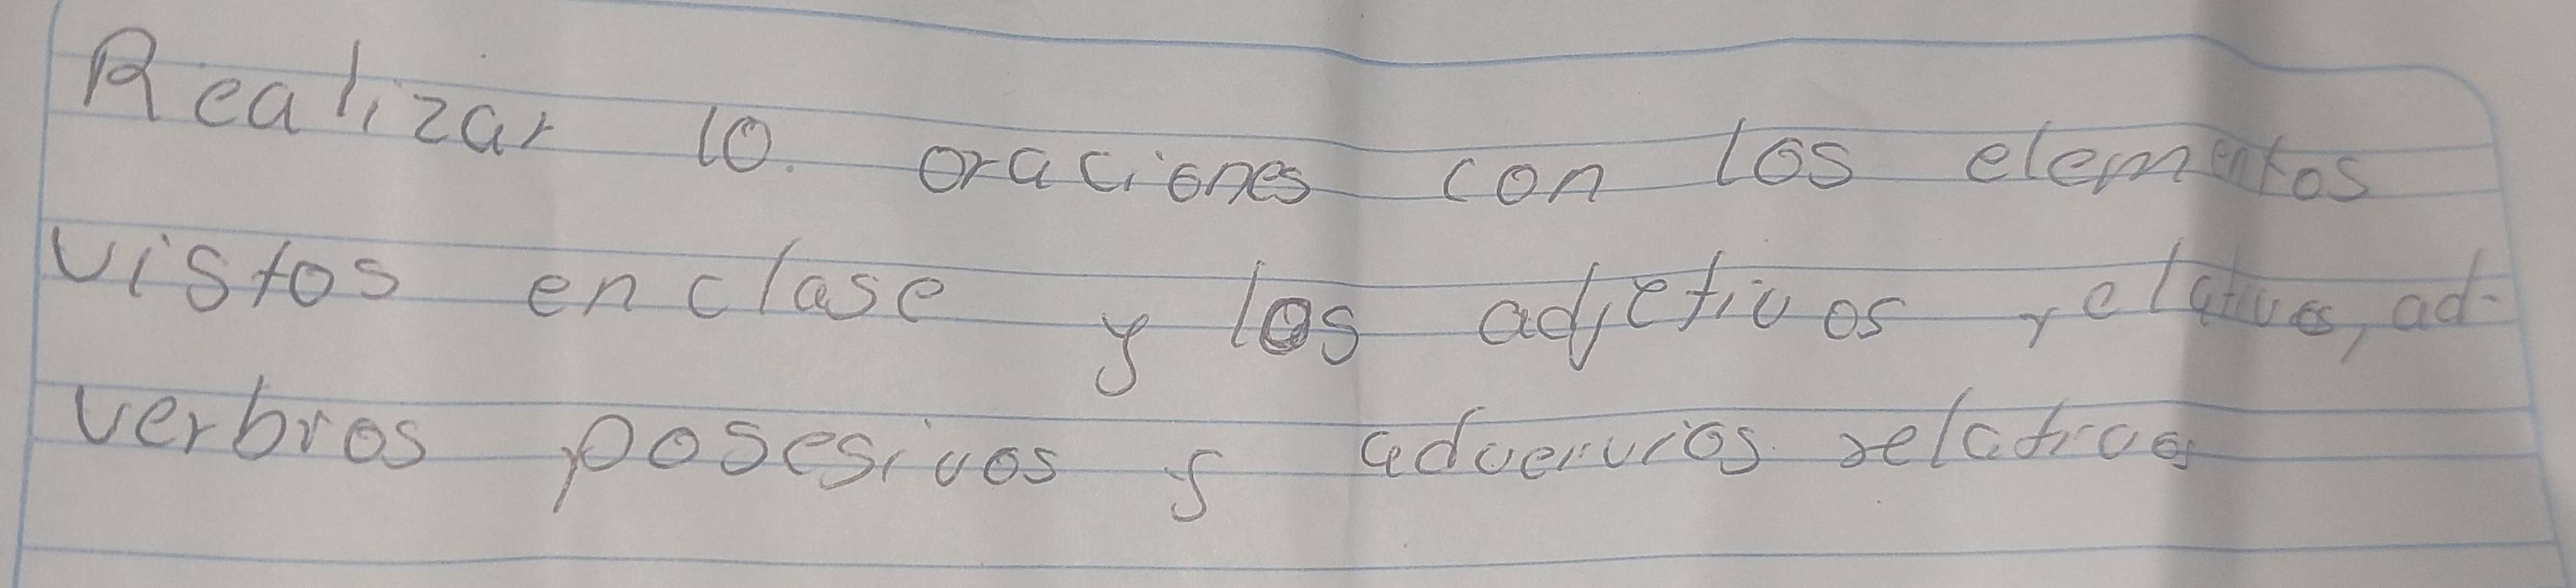 Realizar 10. oraciones con los elementos
vistos en clase y los adjetivos relativos, ad-
verbros posesivos y advervios relativos